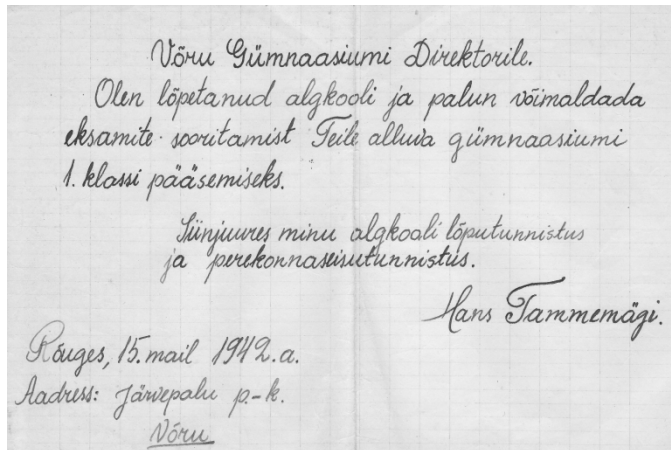 Võru Gümnaasiumi Direktorile.
Olen lõpetanud algkooli ja palun võimaldada
eksamite sooritamist Teile alluva gümnaasiumi
1. klassi pääsemiseks.
Siinjuures minu algkooli lõputunnistus
ja perekonnaseisutunnistus.
Hans Tammemägi.
Rõuges, 15. mail 1942. a.
Aadress: Järvepalu p.-k.
Võru